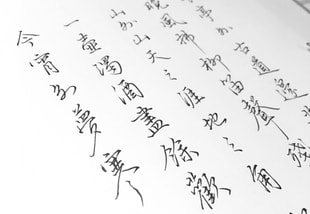 亭外古道邊
晚風拂柳笛聲殘
山外山天之涯地之角
一壺濁酒盡餘歡
今宵別夢寒